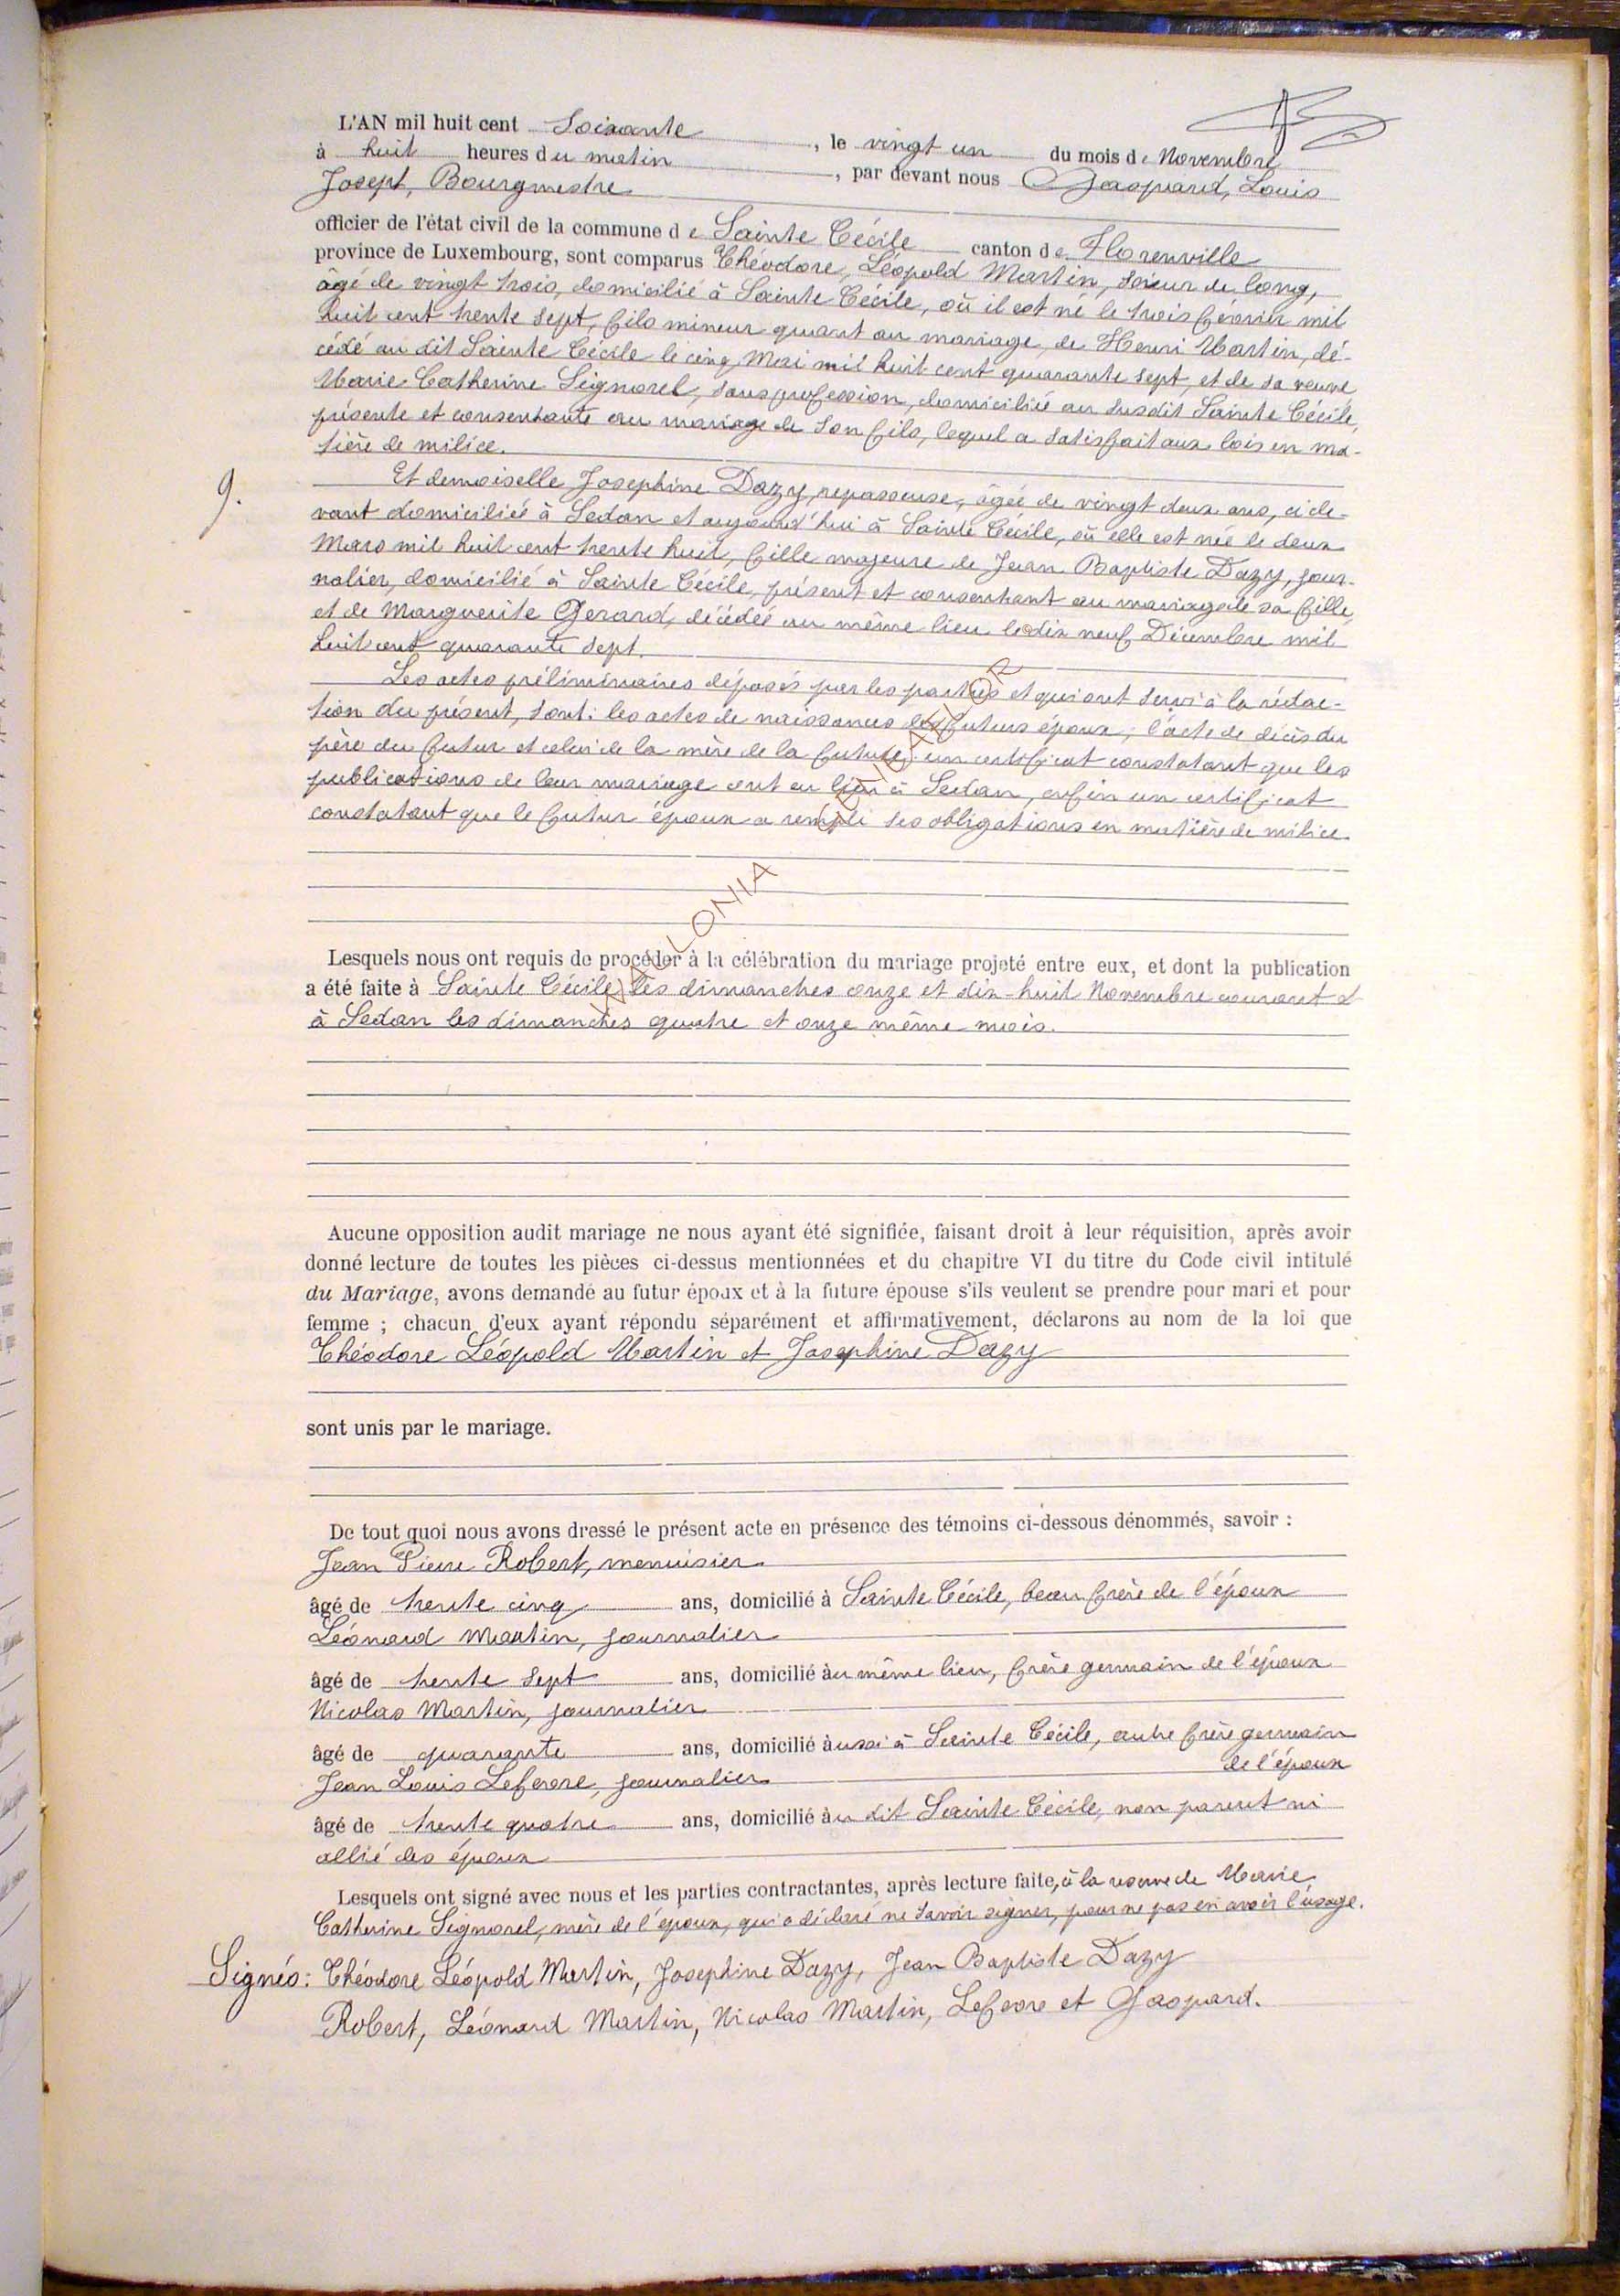 L'AN mil huit cent Soixante, le vingt un du mois de Novembre
à huit heures du matin, par devant nous Gaspard, Louis
Josept, Bourgmestre
officier de l'état civil de la commune de Sainte Cécile canton de Florenville
province de Luxembourg, sont comparus Théodore, Léopold Martin, scieur de long,
âgé de vingt trois, domicilié à Sainte Cécile, où il est né le trois février mil
huit cent trente sept, fils mineur quant au mariage, de Henri Martin, dé-
cédé au dit Sainte Cécile le cinq Mai mil huit cent quarante sept, et de sa veuve
Marie Catherine Signorel, sans profession, domiciliée au susdit Sainte Cécile,
présente et consentante au mariage de son fils, lequel a satisfait aux lois en ma-
tière de milice.
9.
Et demoiselle Josephine Dazy, repasseuse, âgée de vingt deux ans, ci de-
vant domiciliée à Sedan et aujourd'hui à Sainte Cécile, où elle est née le deux
Mars mil huit cent trente huit, fille majeure de Jean Baptiste Dazy, jour-
nalier, domicilié à Sainte Cécile, présent et consentant au mariage de sa fille,
et de Marguerite Gerard, décédée au même lieu le dix neuf Décembre mil
huit cent quarante sept.
Les actes préliminaires déposés par les parties et qui ont servi à la rédac-
tion du présent, sont: les actes de naissances des futurs époux; l'acte de décès du
père du futur et celui de la mère de la future; un certificat constatant que les
publications de leur mariage ont eu lieu à Sedan, enfin un certificat
constatant que le futur époux a rempli ses obligations en matière de milice.
WALLONIA GENEALOR
Lesquels nous ont requis de procéder à la célébration du mariage projeté entre eux, et dont la publication
a été faite à Sainte Cécile les dimanches onze et dix-huit Novembre courant et
à Sedan les dimanches quatre et onze même mois.
Aucune opposition audit mariage ne nous ayant été signifiée, faisant droit à leur réquisition, après avoir
donné lecture de toutes les pièces ci-dessus mentionnées et du chapitre VI du titre du Code civil intitulé
du Mariage, avons demandé au futur époux et à la future épouse s'ils veulent se prendre pour mari et pour
femme ; chacun d'eux ayant répondu séparément et affirmativement, déclarons au nom de la loi que
Théodore Léopold Martin et Josephine Dazy
sont unis par le mariage.
De tout quoi nous avons dressé le présent acte en présence des témoins ci-dessous dénommés, savoir :
Jean Pierre Robert, menuisier
âgé de trente cinq ans, domicilié à Sainte Cécile, beau frère de l'époux
Léonard Martin, journalier
âgé de trente sept ans, domicilié au même lieu, frère germain de l'époux
Nicolas Martin, journalier
âgé de quarante ans, domicilié aussi à Sainte Cécile, autre frère germain
de l'époux
Jean Louis Lefevre, journalier
âgé de trente quatre ans, domicilié au dit Sainte Cécile, non parent ni
allié des époux
Lesquels ont signé avec nous et les parties contractantes, après lecture faite, à la reserve de Marie
Catherine Signorel, mère de l'époux, qui a déclaré ne savoir signer, pour ne pas en avoir l'usage.
Signés: Théodore Léopold Martin, Josephine Dazy, Jean Baptiste Dazy
Robert, Léonard Martin, Nicolas Martin, Lefevre et Gaspard.